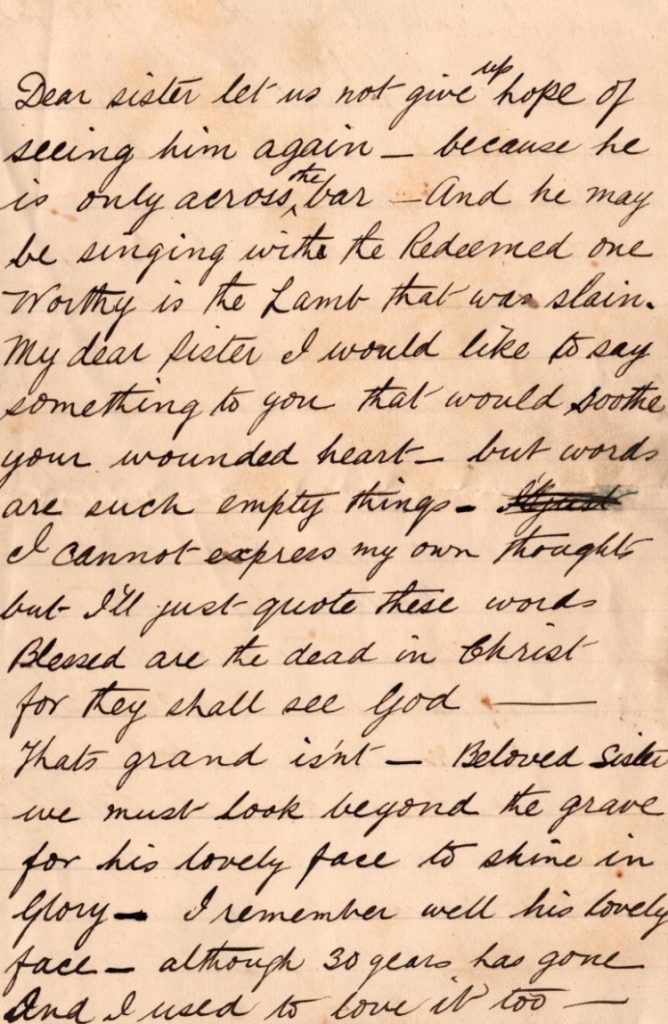 Dear sister let us not give up hope of
seeing him again – because he
is only across the bar – And he may
be singing with the Redeemed one
Worthy is the Lamb that was slain.
My dear Sister I would like to say
something to you that would soothe
your wounded heart – but words
are such empty things –
I cannot express my own thoughts
but I'll just quote these words
Blessed are the dead in Christ
for they shall see God —
Thats grand is'nt – Beloved Sister
we must look beyond the grave
for his lovely face to shine in
Glory – I remember well his lovely
face – although 30 years has gone
And I used to love it too –